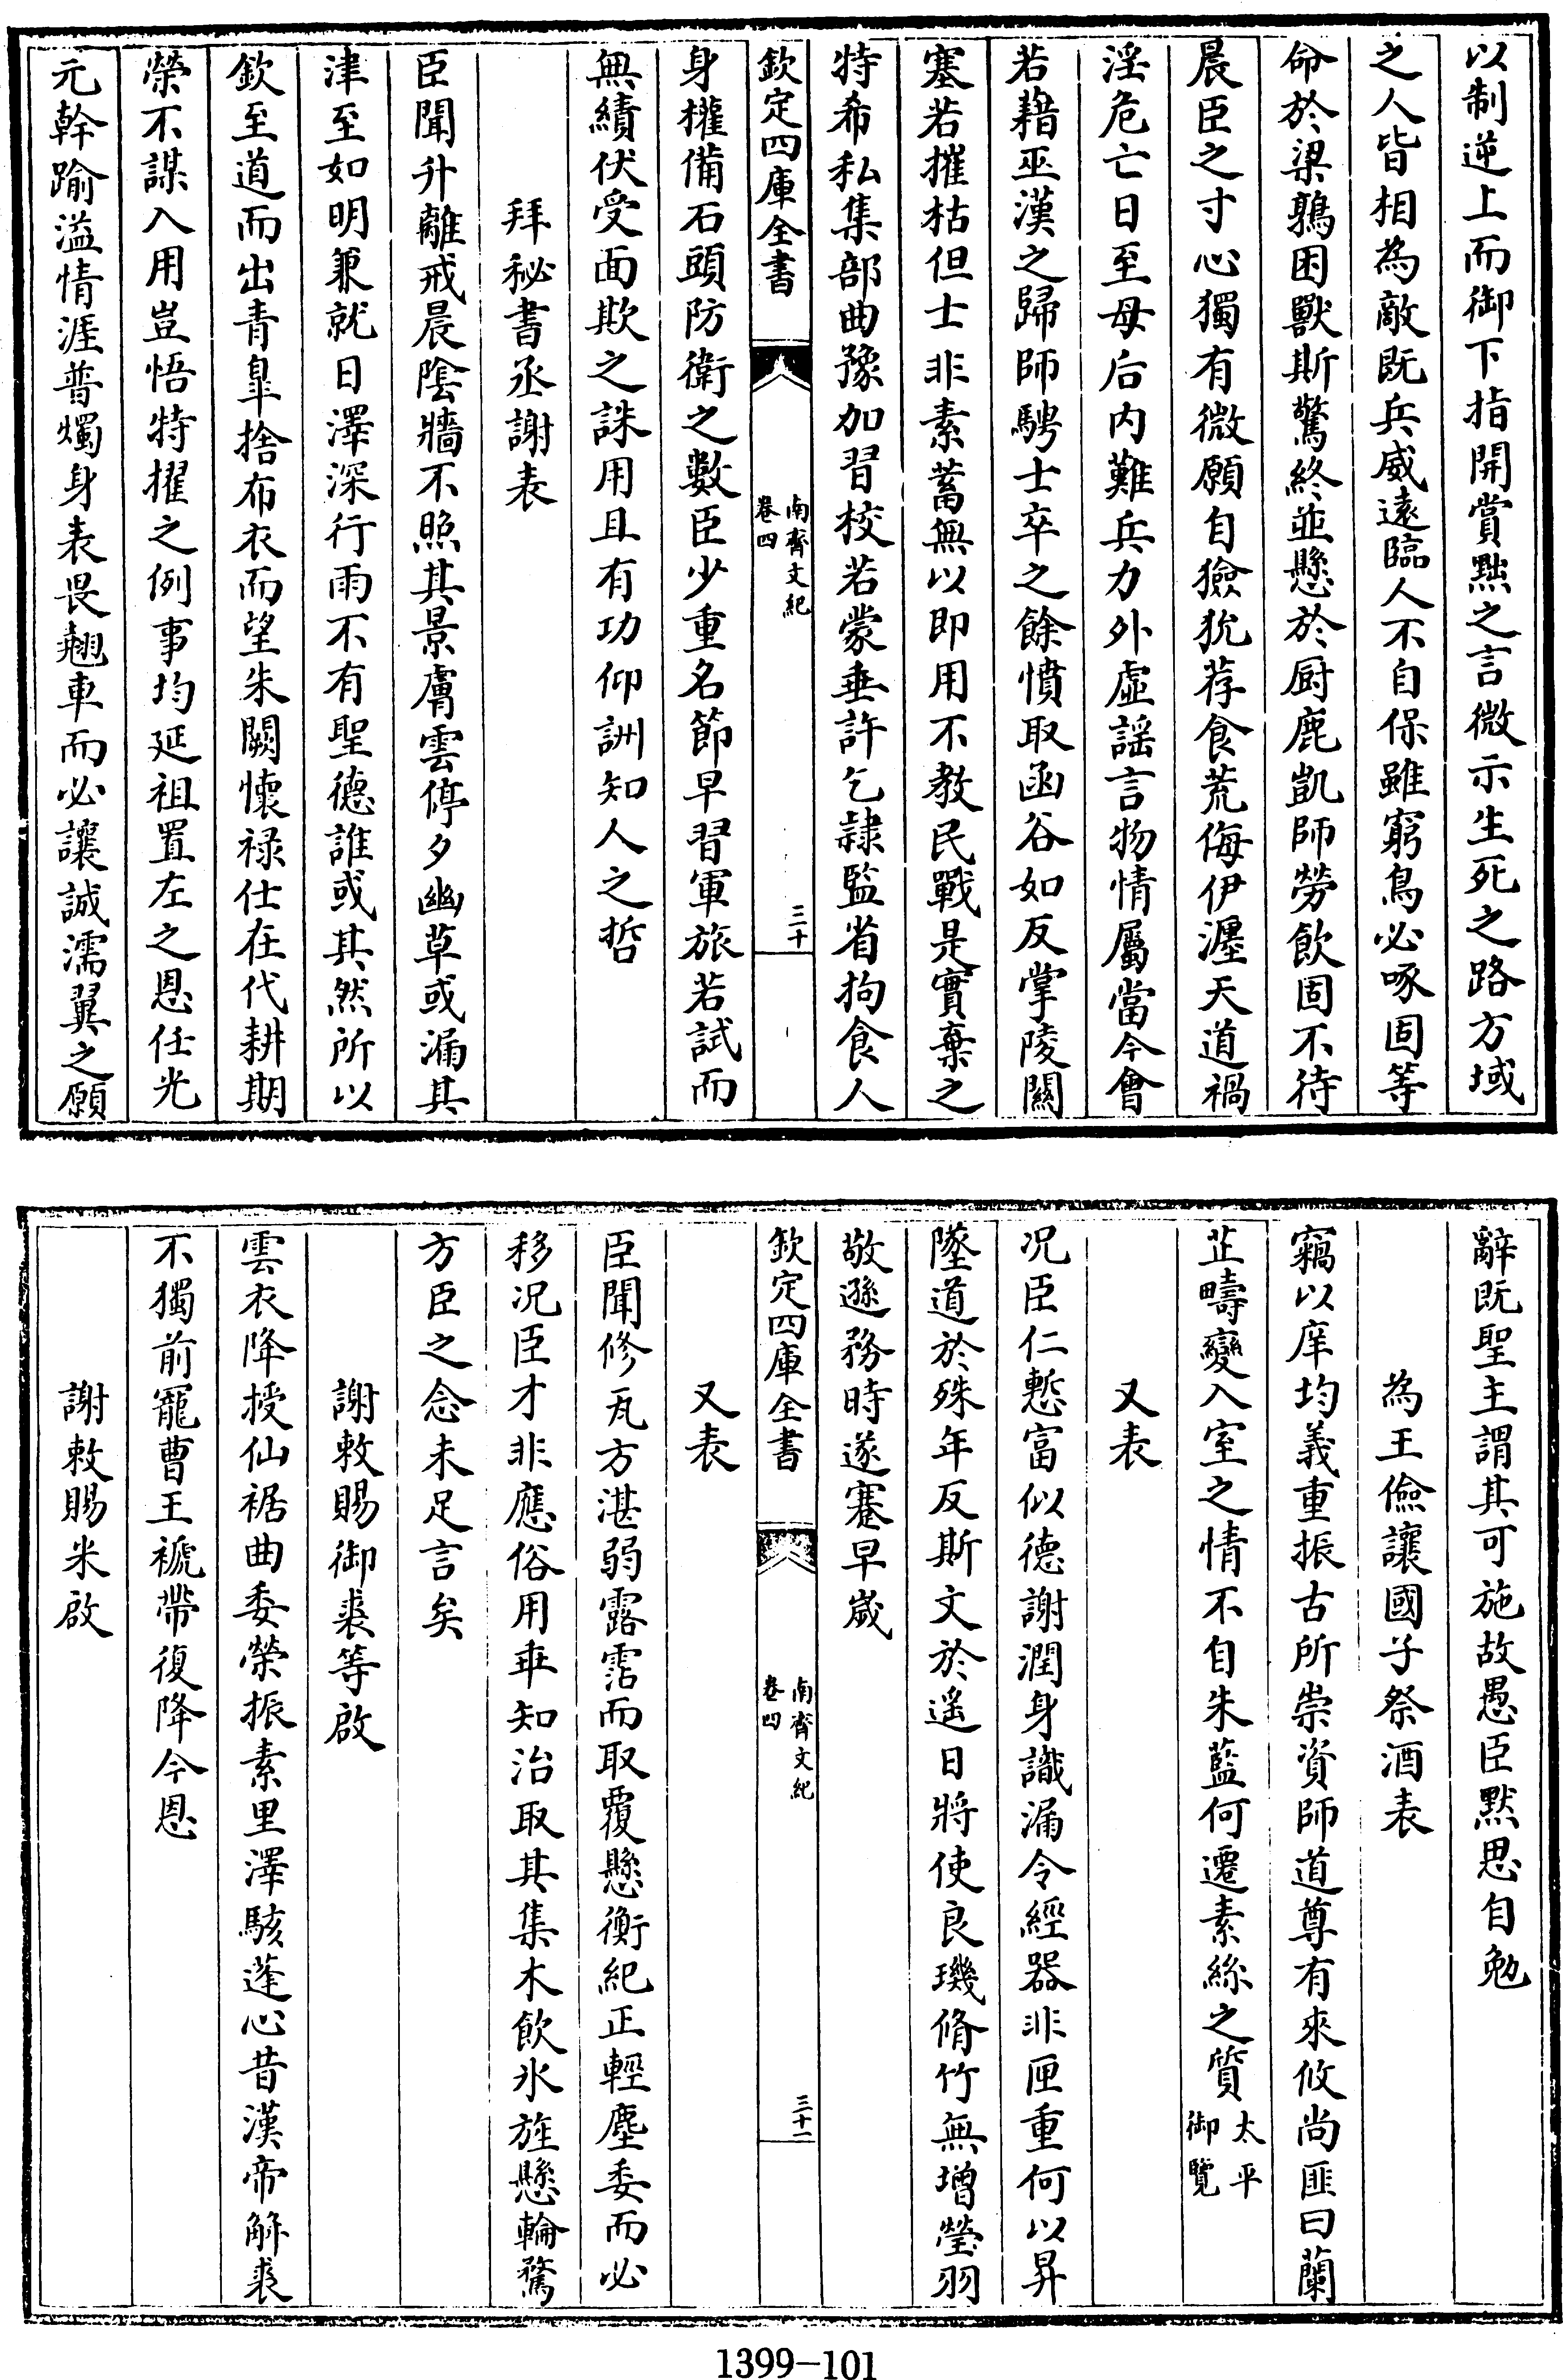 以制逆上而御下指開賞黜之言微示生死之路方域
之人皆相為敵既兵威遠臨人不自保雖窮鳥必啄固等
命於梁鶉困獸斯驚終並懸於厨鹿凱師勞飲固不待
晨臣之寸心獨有微願自獫狁荐食荒侮伊瀍天道禍
淫危亡日至母后内難兵力外虛謡言物情屬當今會
若藉巫漢之歸師騁士卒之餘憤取函谷如反掌陵關
塞若摧枯但士非素蓄無以即用不教民戰是實棄之
特希私集部曲豫加習校若蒙垂許乞隷監省拘食人
欽定四庫全書
南齊文紀
卷四
三十
身權備石頭防衛之數臣少重名節早習軍旅若試而
無績伏受面欺之誅用且有功仰詶知人之哲
拜秘書丞謝表
臣聞升離戒晨隂牆不照其景膚雲停夕幽草或漏其
津至如明兼就日澤深行雨不有聖德誰或其然所以
欽至道而出青臯捨布衣而望朱闕懷禄仕在代耕期
榮不謀入用豈悟特擢之例事均延祖置左之恩任光
元幹踰溢情涯普燭身表畏翹車而必讓誠濡翼之願
辭既聖主謂其可施故愚臣黙思自勉
為王儉讓國子祭酒表
竊以庠均義重振古所崇資師道尊有來攸尚匪曰蘭
芷疇變入室之情不自朱藍何遷素絲之質太平
御覽
又表
况臣仁慙富似德謝潤身識漏令經器非匣重何以昇
墜道於殊年反斯文於遥日將使良璣脩竹無增瑩羽
敬遜務時遂蹇早歲
欽定四庫全書
南齊文紀
卷四
三十一
又表
臣聞修瓦方湛弱露霑而取覆懸衡紀正輕塵委而必
移况臣才非應俗用乖知治取其集木飲氷旌懸輪騖
方臣之念未足言矣
謝敕賜御裘等啟
雲衣降授仙裾曲委榮振素里澤駭蓬心昔漢帝解裘
不獨前寵曹王褫帶復降今恩
謝敕賜米啟
1399-101